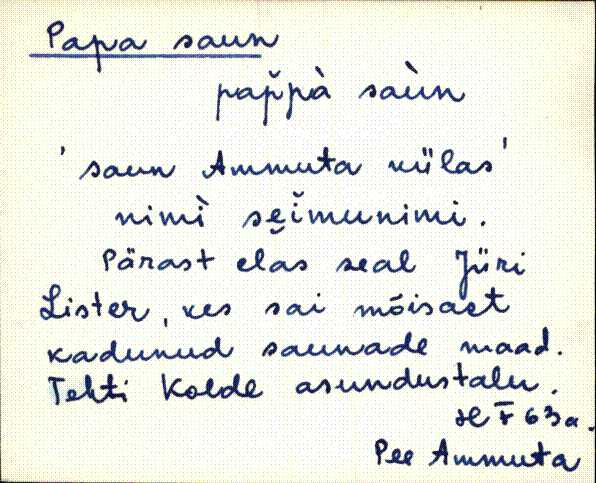 Papa saun
pap̆pà saùn
'saun Ammuta külas'
nimì sĕĭmunimi.
Pärast elas seal Jüri
Lister, kes sai mõisaet
kadunud saunade maad.
Tehti Kolde asundustalu.
63a.
Pee Ammuta